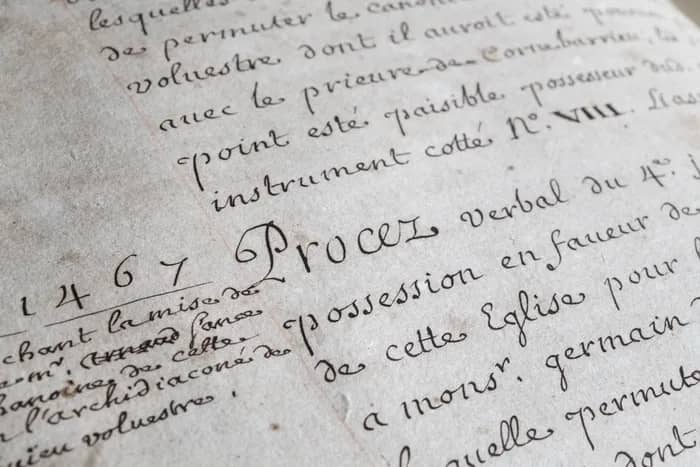 lesquelles
de permuter le canoni
voluestre dont il auroit esté pourueu
auec le prieuré de Cornebarrieu, les
point esté paisible possesseur dud.
instrument cotté N.º VIII. Lias
1467 Procez verbal du 4.e
possession en faueur de
de cette Eglise pour
à monsr. germain
laquelle permuta
dont
chant la mise de
mr.
hanoine de cette
l'archidiaconé de
rieu voluestre.